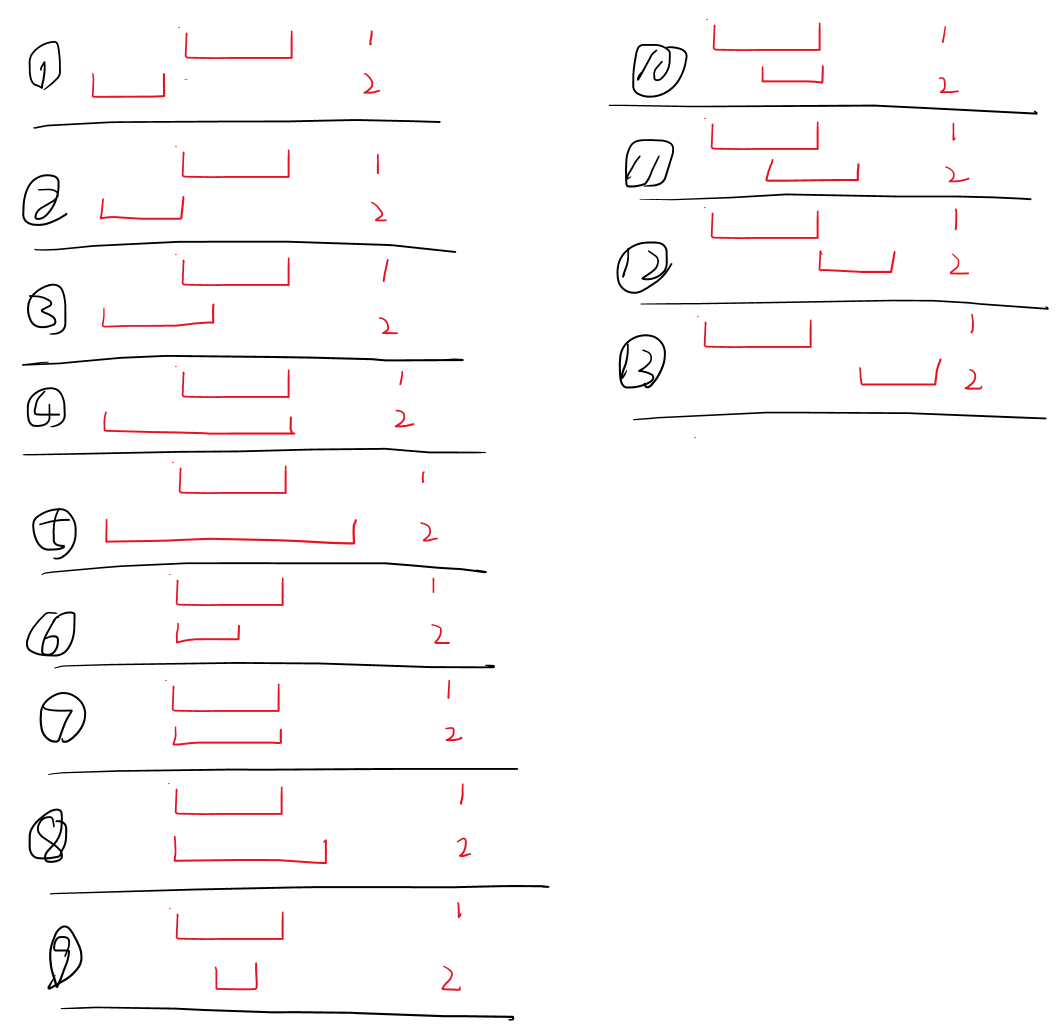 ① 1
2
② 1
2
③ 1
2
④ 1
2
⑤ 1
2
⑥ 1
2
⑦ 1
2
⑧ 1
2
⑨ 1
2
⑩ 1
2
⑪ 1
2
⑫ 1
2
⑬ 1
2